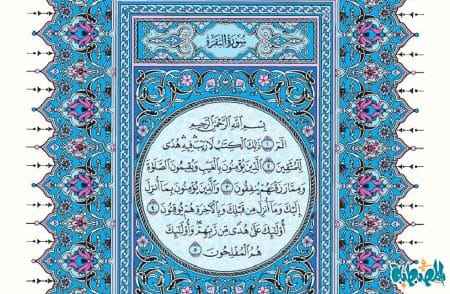 سُورَةُ البَقَرَةِ
بِسْمِ اللَّهِ الرَّحْمَٰنِ الرَّحِيمِ
الٓمٓ ١ ذَٰلِكَ الْكِتَٰبُ لَا رَيْبَ فِيهِ هُدًى
لِّلْمُتَّقِينَ ٢ الَّذِينَ يُؤْمِنُونَ بِالْغَيْبِ وَيُقِيمُونَ الصَّلَوٰةَ
وَمِمَّا رَزَقْنَٰهُمْ يُنفِقُونَ ٣ وَالَّذِينَ يُؤْمِنُونَ بِمَا أُنزِلَ
إِلَيْكَ وَمَا أُنزِلَ مِن قَبْلِكَ وَبِالْءَاخِرَةِ هُمْ يُوقِنُونَ ٤
أُولَٰئِكَ عَلَىٰ هُدًى مِّن رَّبِّهِمْ وَأُولَٰئِكَ
هُمُ الْمُفْلِحُونَ ٥